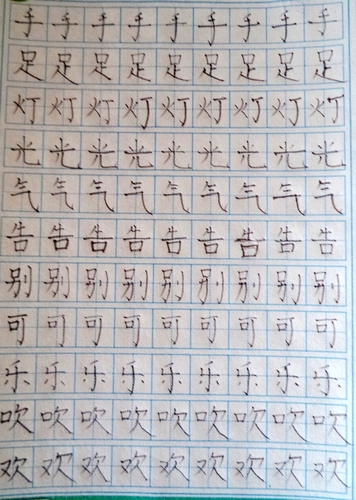 手手手手手手手手手
足足足足足足足足足
灯灯灯灯灯灯灯灯灯
光光光光光光光光光
气气气气气气气气气
告告告告告告告告告
别别别别别别别别别
可可可可可可可可可
乐乐乐乐乐乐乐乐乐
吹吹吹吹吹吹吹吹吹
欢欢欢欢欢欢欢欢欢